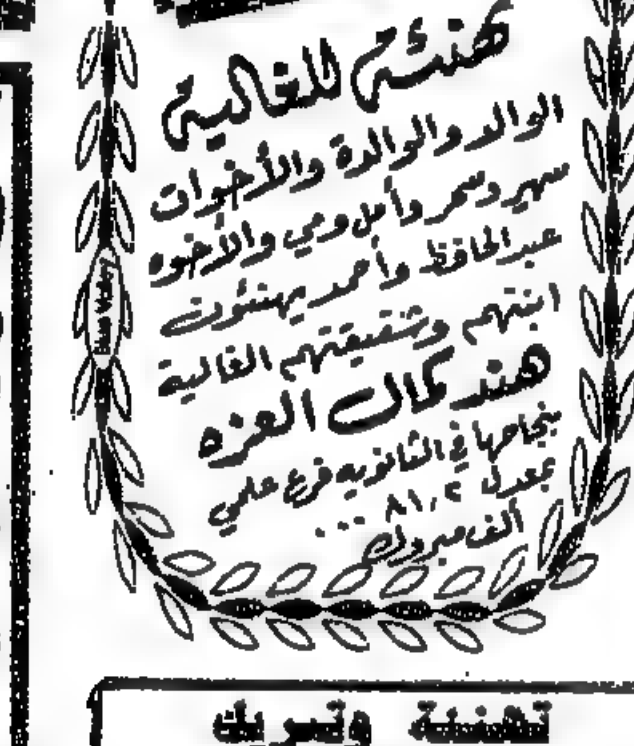 تهنئة للغالية
الوالد والوالدة والأخوات
سهير وسمر وأمل ومي والأخوه
عبدالحافظ وأحمد يهنئون
ابنتهم وشقيقتهم الغالية
هند كمال العزه
بنجاحها في الثانويه فرع علمي
بمعدل ٨١,٢ ...
ألف مبروك
تهنئة وتبريك